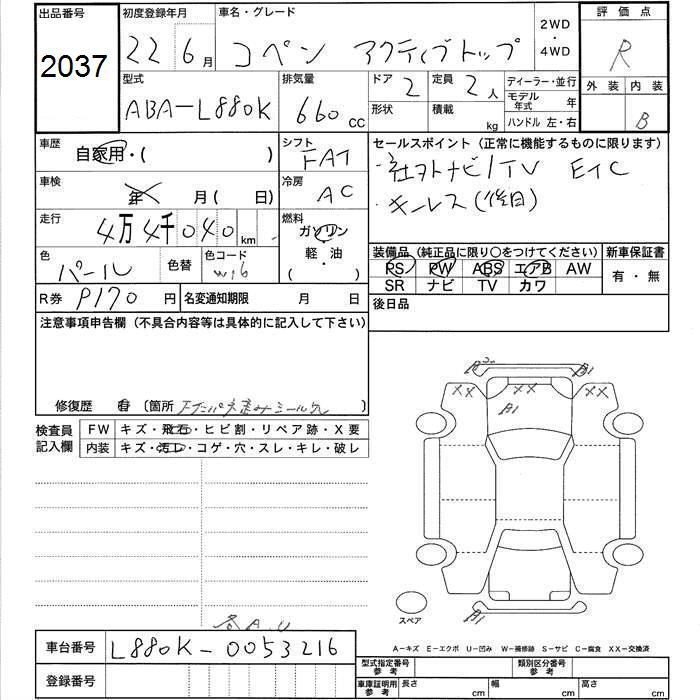 出品番号 2037
初度登録年月 22 6月
車名・グレード コペン アクティブトップ
2WD・4WD
評価点 R
外装 内装 B
型式 ABA-L880K
排気量 660cc
ドア 2 形状
定員 2人 積載 kg
ディーラー・並行
モデル年式 年
ハンドル 左・右
車歴 自家用・( )
シフト FAT
セールスポイント (正常に機能するものに限ります)
・社外ナビ/TV ETC
・キーレス(後日)
車検 年 月( 日)
冷房 AC
走行 4万4千040km
燃料 ガソリン 軽・油 ( )
色 パール 色替 色コード W16
装備品(純正品に限り○をつけてください)
PS PW ABS エアB AW
SR ナビ TV カワ
新車保証書 有・無
R券 P170円 名変通知期限 月 日
後日品
注意事項申告欄(不具合内容等は具体的に記入して下さい)
修復歴 〔箇所 〕
検査員記入欄
FW キズ・飛石・ヒビ割・リペア跡・X要
内装 キズ・汚レ・コゲ・穴・スレ・キレ・破レ
XX XX XX
B1
B1
スペア
各A.U
A-キズ E-エクボ U-凹み W-補修跡 S-サビ C-腐食 XX-交換済
車台番号 L880K-0053216
登録番号
型式指定番号 参考 類別区分番号 参考
車庫証明用 参考 長さ cm 幅 cm 高さ cm